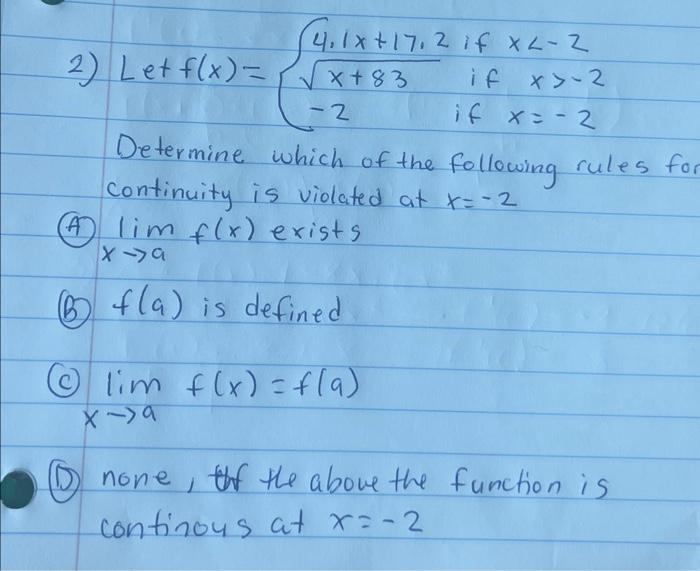 2) Let f(x) = { 4.1x+17.2 if x<-2
√x+83 if x>-2
-2 if x=-2
Determine which of the following rules for
continuity is violated at x=-2
(A) lim f(x) exists
x→a
(B) f(a) is defined
(C) lim f(x) = f(a)
x→a
(D) none, of the above the function is
continous at x=-2